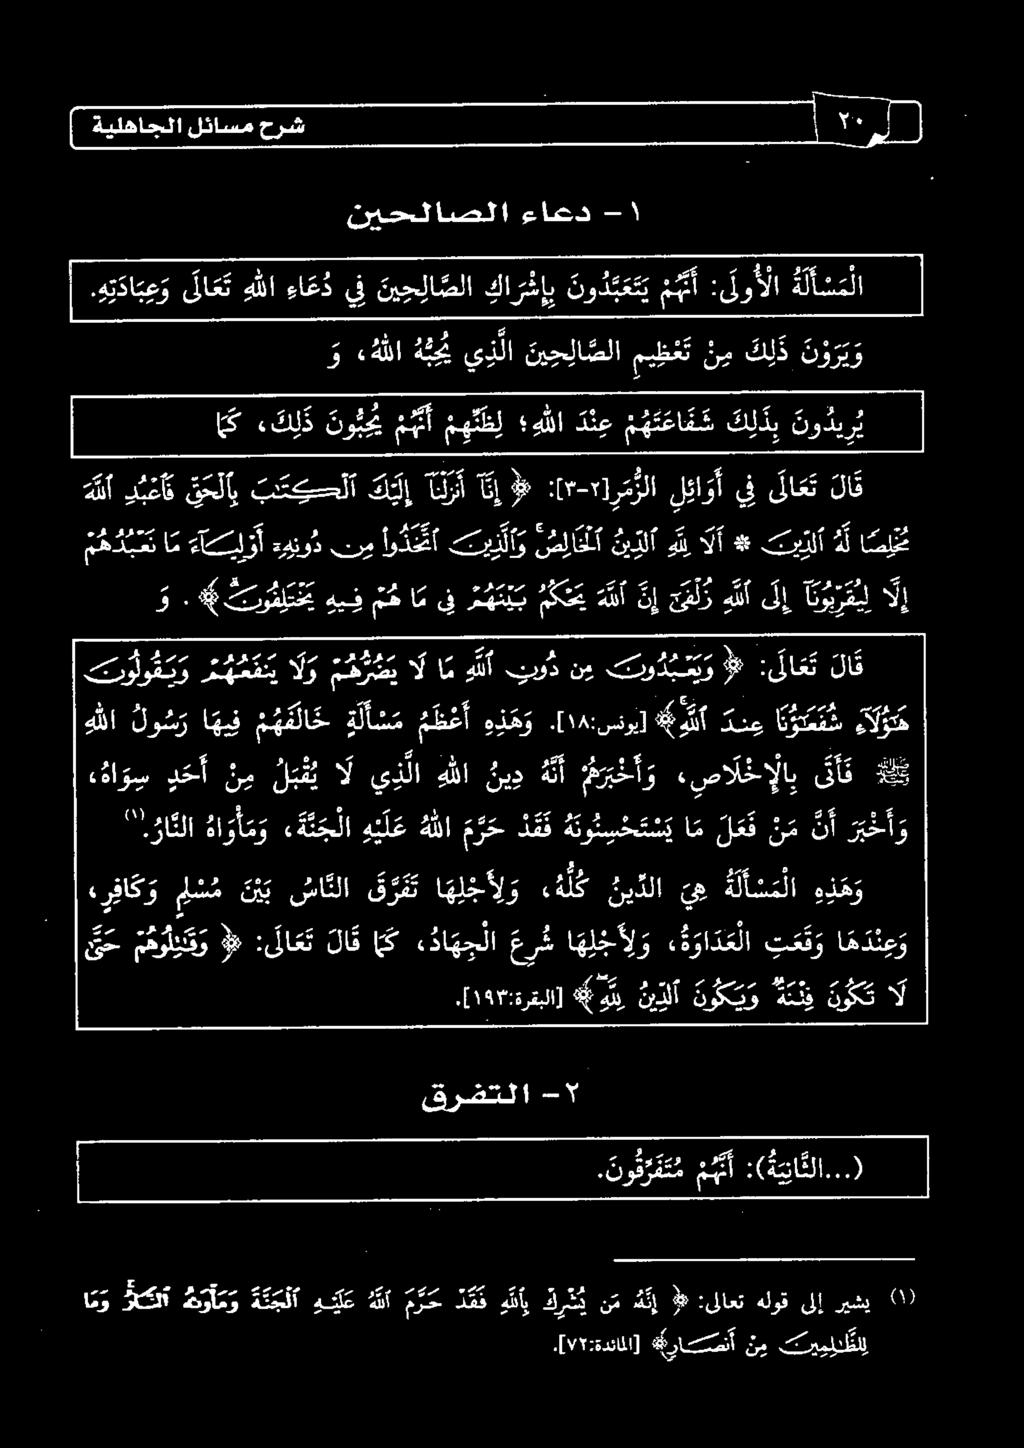 ٢٠
شرح مسائل الجاهلية
١- دعاء الصالحين
الْمَسْأَلَةُ الْأُولَى: أَنَّهُمْ يَتَعَبَّدُونَ بِإِشْرَاكِ الصَّالِحِينَ فِي دُعَاءِ اللهِ تَعَالَى وَعِبَادَتِهِ.
وَيَرَوْنَ ذَلِكَ مِنْ تَعْظِيمِ الصَّالِحِينَ الَّذِي يُحِبُّهُ اللهُ، وَ
يُرِيدُونَ بِذَلِكَ شَفَاعَتَهُمْ عِنْدَ اللهِ؛ لِظَنِّهِمْ أَنَّهُمْ يُحِبُّونَ ذَلِكَ، كَمَا
قَالَ تَعَالَى فِي أَوَائِلِ الزُّمَرِ[٢-٣]: ﴿ إِنَّآ أَنزَلْنَآ إِلَيْكَ ٱلْكِتَٰبَ بِٱلْحَقِّ فَٱعْبُدِ ٱللَّهَ
مُخْلِصًا لَّهُ ٱلدِّينَ * أَلَا لِلَّهِ ٱلدِّينُ ٱلْخَالِصُ ۚ وَٱلَّذِينَ ٱتَّخَذُوا۟ مِن دُونِهِۦٓ أَوْلِيَآءَ مَا نَعْبُدُهُمْ
إِلَّا لِيُقَرِّبُونَآ إِلَى ٱللَّهِ زُلْفَىٰٓ إِنَّ ٱللَّهَ يَحْكُمُ بَيْنَهُمْ فِى مَا هُمْ فِيهِ يَخْتَلِفُونَ ۗ ﴾ . وَ
قَالَ تَعَالَى: ﴿ وَيَعْبُدُونَ مِن دُونِ ٱللَّهِ مَا لَا يَضُرُّهُمْ وَلَا يَنفَعُهُمْ وَيَقُولُونَ
هَٰٓؤُلَآءِ شُفَعَٰٓؤُنَا عِندَ ٱللَّهِ ۚ ﴾ [يونس:١٨]. وَهَذِهِ أَعْظَمُ مَسْأَلَةٍ خَالَفَهُمْ فِيهَا رَسُولُ اللهِ
ﷺ فَأَتَى بِالْإِخْلَاصِ، وَأَخْبَرَهُمْ أَنَّهُ دِينُ اللهِ الَّذِي لَا يُقْبَلُ مِنْ أَحَدٍ سِوَاهُ،
وَأَخْبَرَ أَنَّ مَنْ فَعَلَ مَا يَسْتَحْسِنُونَهُ فَقَدْ حَرَّمَ اللهُ عَلَيْهِ الْجَنَّةَ، وَمَأْوَاهُ النَّارُ.(١)
وَهَذِهِ الْمَسْأَلَةُ هِيَ الدِّينُ كُلُّهُ، وَلِأَجْلِهَا تَفَرَّقَ النَّاسُ بَيْنَ مُسْلِمٍ وَكَافِرٍ،
وَعِنْدَهَا وَقَعَتِ الْعَدَاوَةُ، وَلِأَجْلِهَا شُرِعَ الْجِهَادُ، كَمَا قَالَ تَعَالَى: ﴿ وَقَٰتِلُوهُمْ حَتَّىٰ
لَا تَكُونَ فِتْنَةٌ وَيَكُونَ ٱلدِّينُ لِلَّهِ ۖ ﴾ [البقرة:١٩٣].
٢- التفرق
(...الثَّانِيَةُ): أَنَّهُمْ مُتَفَرِّقُونَ.
(١) يشير إلى قوله تعالى: ﴿ إِنَّهُ مَن يُشْرِكْ بِٱللَّهِ فَقَدْ حَرَّمَ ٱللَّهُ عَلَيْهِ ٱلْجَنَّةَ وَمَأْوَىٰهُ ٱلنَّارُ ۖ وَمَا
لِلظَّٰلِمِينَ مِنْ أَنصَارٍ ﴾ [المائدة:٧٢].